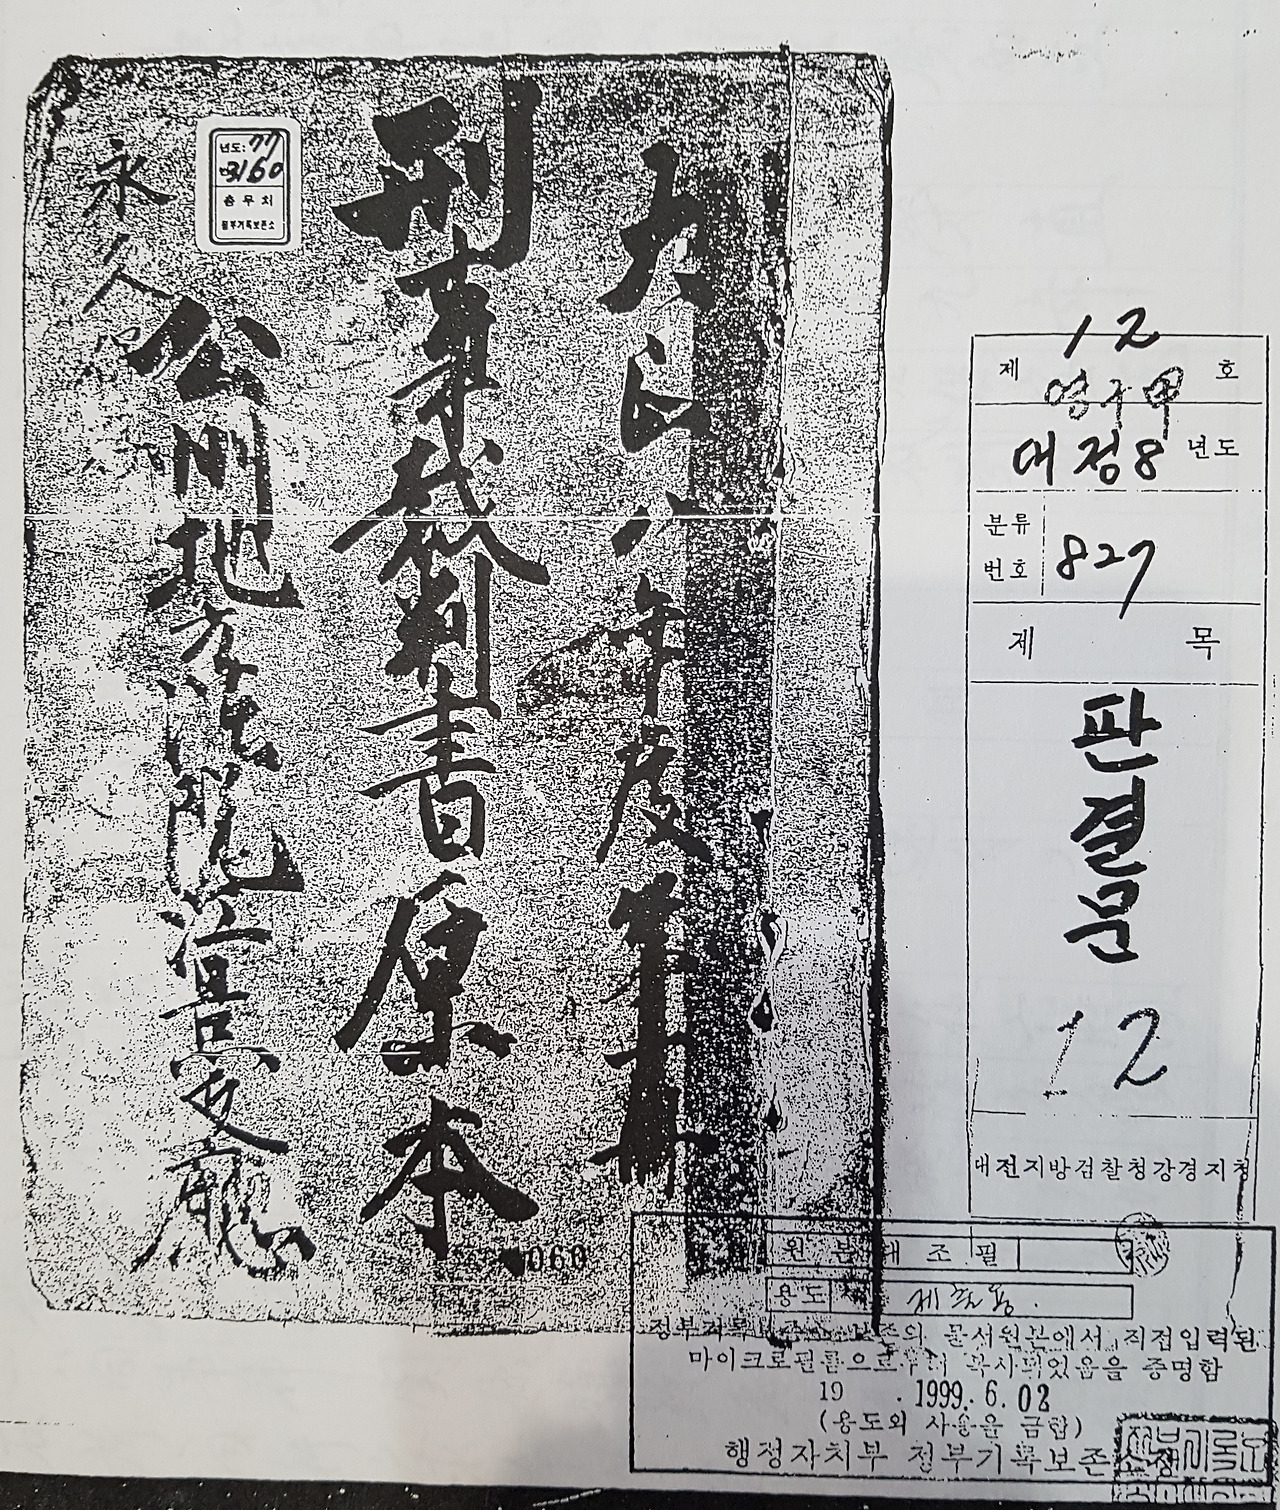 大正八年度第十冊
刑事裁判書原本
公州地方法院
永久
년도: 77
3160
총무처
정부기록보존소
060
12
제 호
영구
대정8 년도
분류
번호
827
제 목
판결문
12
대전지방검찰청강경지청
원부대조필
용도
제출용.
정부기록보존소 보존의 문서원본에서 직접입력된
마이크로필름으로부터 복사되었음을 증명함
19 . 1999. 6. 02
(용도외 사용을 금함)
행정자치부 정부기록보존소장